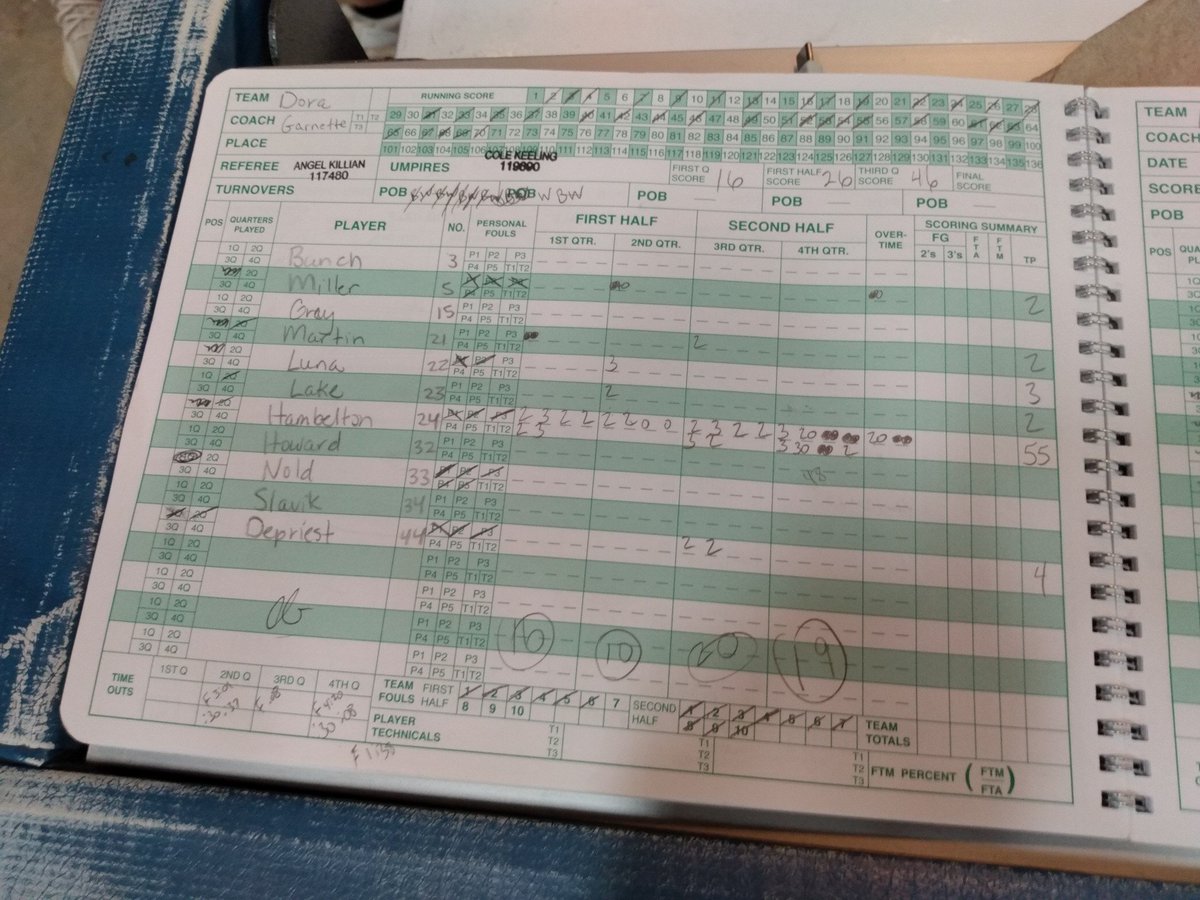 TEAM Dora T1 T2 RUNNING SCORE 1 2 3 4 5 6 7 8 9 10 11 12 13 14 15 16 17 18 19 20 21 22 23 24 25 26 27 28
COACH Garnette T3 29 30 31 32 33 34 35 36 37 38 39 40 41 42 43 44 45 46 47 48 49 50 51 52 53 54 55 56 57 58 59 60 61 62 63 64
65 66 67 68 69 70 71 72 73 74 75 76 77 78 79 80 81 82 83 84 85 86 87 88 89 90 91 92 93 94 95 96 97 98 99 100
PLACE 101 102 103 104 105 106 107 108 109 110 111 112 113 114 115 116 117 118 119 120 121 122 123 124 125 126 127 128 129 130 131 132 133 134 135 136
REFEREE ANGEL KILLIAN 117480 UMPIRES COLE KEELING 119890 FIRST Q SCORE 16 FIRST HALF SCORE 26 THIRD Q SCORE 46 FINAL SCORE
TURNOVERS POB POB W BW POB POB POB
POS QUARTERS PLAYED PLAYER NO. PERSONAL FOULS FIRST HALF SECOND HALF OVER-TIME SCORING SUMMARY
1ST QTR. 2ND QTR. 3RD QTR. 4TH QTR. FG 2's 3's FTA FTM TP
1Q 2Q 3Q 4Q Bunch 3 P1 P2 P3 P4 P5 T1 T2
2Q 3Q 4Q Miller 5 P4 P5 T1 T2 2
1Q 2Q 3Q 4Q Gray 15 P1 P2 P3 P4 P5 T1 T2
3Q 4Q Martin 21 P1 P2 P3 P4 P5 T1 T2 2 2
2Q 3Q 4Q Luna 22 P2 P3 P4 P5 T1 T2 3 3
1Q 2Q 3Q 4Q Lake 23 P1 P2 P3 P4 P5 T1 T2 2 2
2Q 3Q 4Q Hambelton 24 P1 P2 P3 P4 P5 T1 T2 2 3 2 2 2 2 0 0 2 3 2 2 3 20 20 55
2 3 3 2 3 30 2
1Q 2Q 3Q 4Q Howard 32 P1 P2 P3 P4 P5 T1 T2
2Q 3Q 4Q Nold 33 P1 P2 P3 P4 P5 T1 T2 48
1Q 2Q 3Q 4Q Slavik 34 P1 P2 P3 P4 P5 T1 T2
2Q 3Q 4Q Depriest 44 P2 P3 P4 P5 T1 T2 2 2 4
1Q 2Q 3Q 4Q P1 P2 P3 P4 P5 T1 T2
1Q 2Q 3Q 4Q P1 P2 P3 P4 P5 T1 T2
1Q 2Q 3Q 4Q P1 P2 P3 P4 P5 T1 T2 16 10 20 19
1Q 2Q 3Q 4Q P1 P2 P3 P4 P5 T1 T2
TIME OUTS 1ST Q 2ND Q 3RD Q 4TH Q TEAM FOULS FIRST HALF 1 2 3 4 5 6 7 8 9 10 SECOND HALF 1 2 3 4 5 6 7 8 9 10 TEAM TOTALS
PLAYER TECHNICALS T1 T2 T3 T1 T2 T3 T1 T2 T3 FTM PERCENT ( FTM FTA )
TEAM
COACH
DATE
SCORE
POB
POS QUARTERS